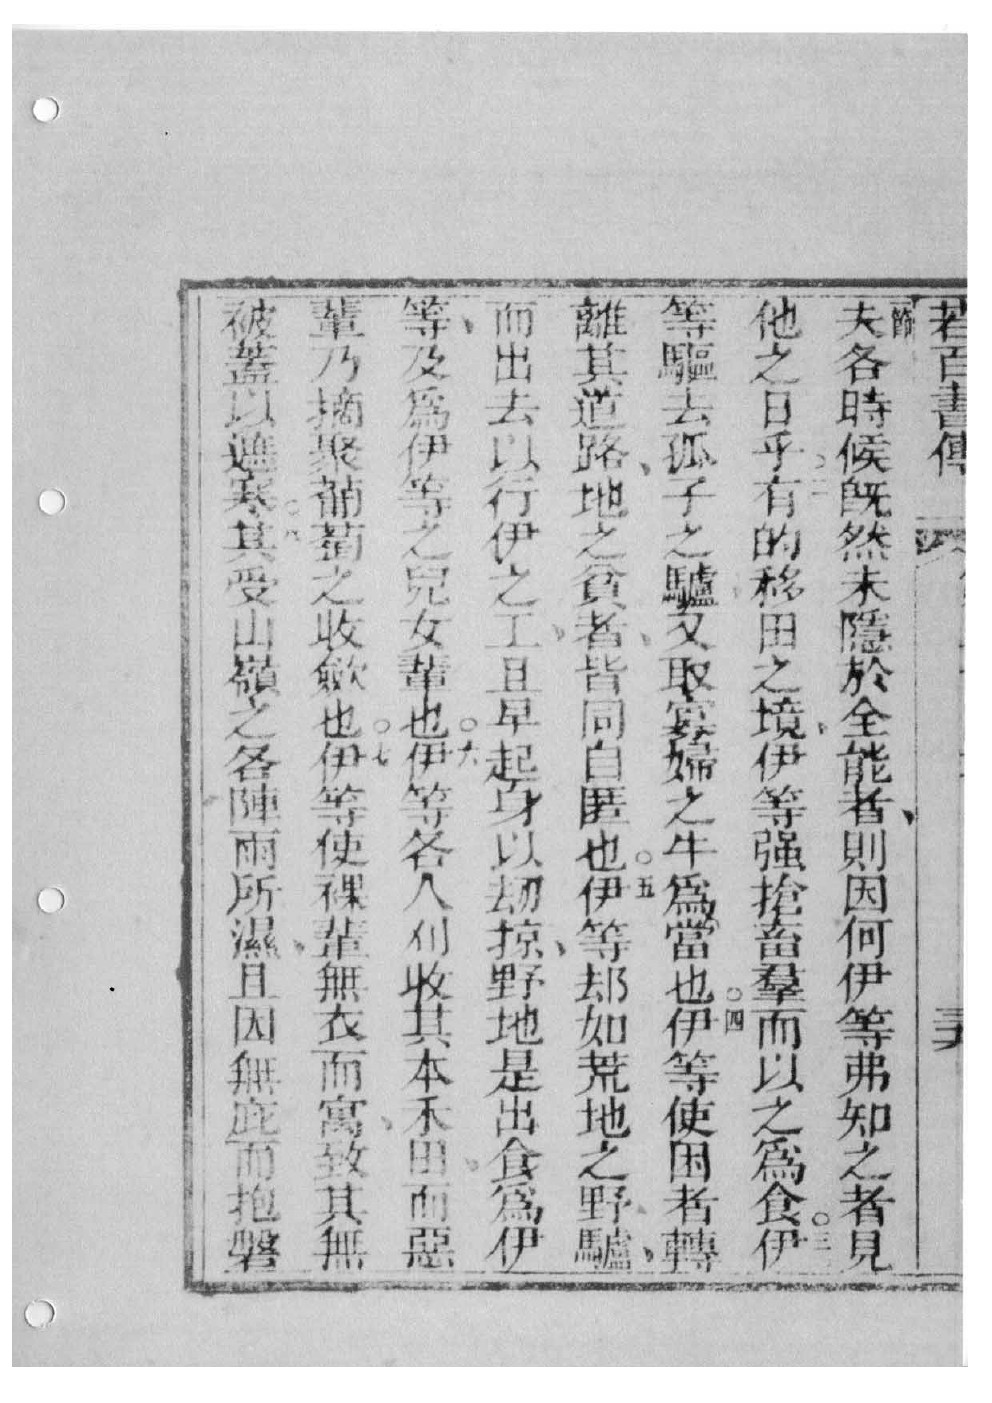 若百書傳
節
夫各時候既然未隱於全能者、則因何伊等弗知之者見
他之日乎○二有的移田之境、伊等强搶畜羣而以之爲食○三伊
等驅去孤子之驢、又取寡婦之牛爲當也○四伊等使困者轉
離其道路、地之貧者、皆同自匿也○五伊等却如荒地之野驢、
而出去以行伊之工、且早起身以刼掠、野地是出食爲伊
等、及爲伊等之兒女輩也○六伊等各人刈收其本禾田、而惡
輩乃摘聚葡萄之收斂也○七伊等使裸輩無衣而寓、致其無
被蓋以遮寒○八其受山嶺之各陣雨所濕、且因無庇而抱磐